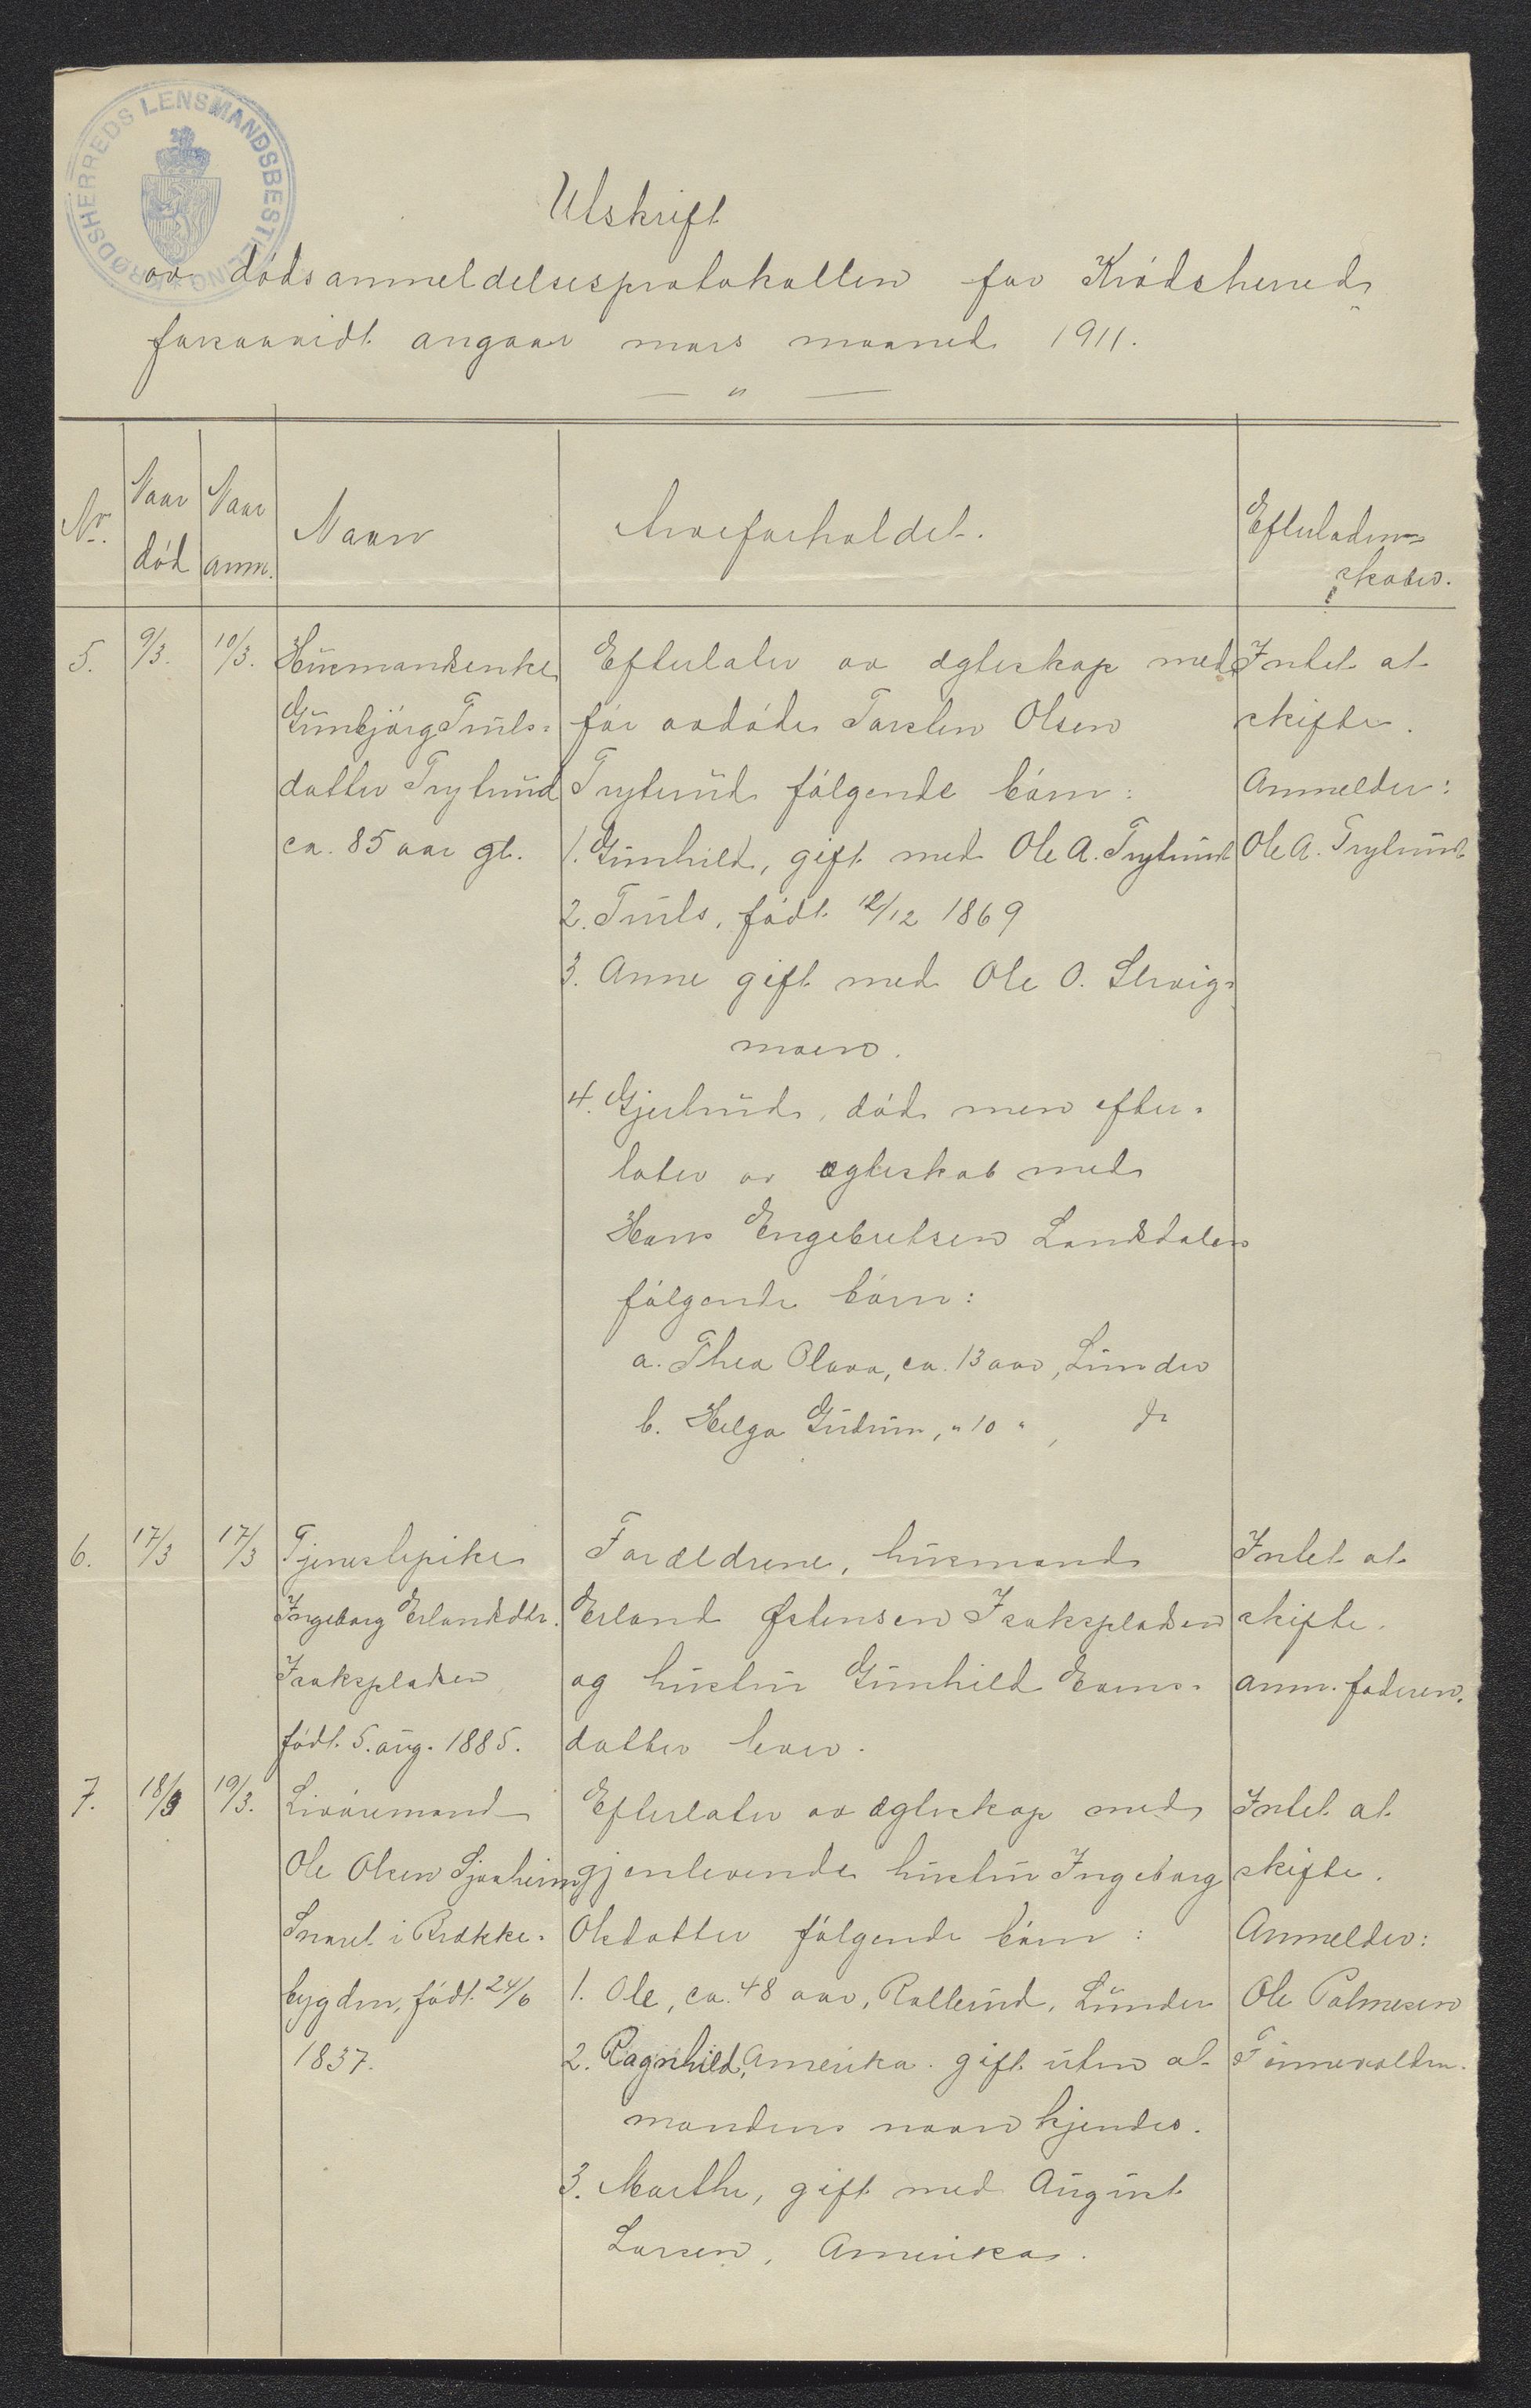 KRØDSHERREDS LENSMANDSBESTILLING
Utskrift
av dødsanmeldelsesprotokollen for Krødsherred
forsaavidt angaar mars maaned 1911.
— " —
Nr. Naar død Naar anm. Navn Arveforholdet. Efterladenskaber.
5. 9/3. 10/3. Husmandsenke Efterlater av ægteskap med Intet at
Gunbjørg Truls- før avdøde Torsten Olsen skifte.
datter Tryterud Tryterud følgende børn: Anmelder:
ca. 85 aar gl. 1. Gunhild, gift med Ole A. Tryterud Ole A. Tryterud
2. Truls, født 12/12 1869
3. Anne gift med Ole O.
moen.
4. Gjertrud, død men efter-
later av ægteskab med
Hans Engebretsen Landsdalen
følgende børn:
a. Thea Olava, ca. 13 aar, Lunder
b. Helga Gudrun, " 10 " , do
6. 17/3 17/3 Tjenestepike Forældrene, husmand Intet at
Ingeborg Erlandsdtr. Erland Østensen Isakspladsen skifte.
Isakspladsen og hustru Gunhild Evens- anm. faderen.
født 5. aug. 1885. datter lever.
7. 18/3 19/3. Livøremand Efterlater av ægteskap med Intet at
Ole Olsen Sjaaheim gjenlevende hustru Ingeborg skifte.
Snaret i Brække- Olsdatter følgende børn: Anmelder:
bygden, født 24/6 1. Ole, ca. 48 aar, Rallerud, Lunder Ole Palmesen
1837. 2. Ragnhild, Amerika. gift uten at Finnevolden.
mandens navn kjendes.
3. Marthe, gift med August
Larsen, Amerika.